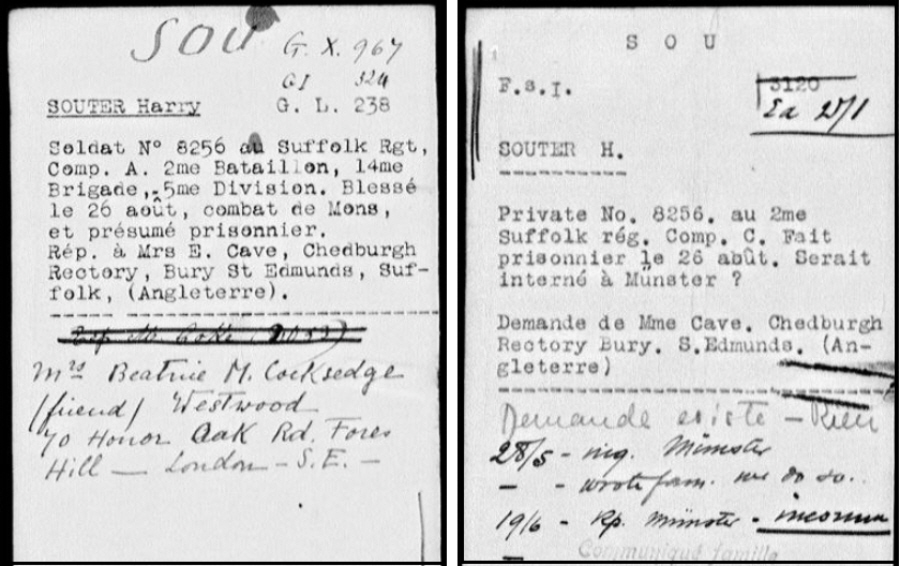 SOU
G. X. 967
GI 324
SOUTER Harry G. L. 238
Soldat N° 8256 au Suffolk Rgt,
Comp. A. 2me Bataillon, 14me
Brigade, 5me Division. Blessé
le 26 août, combat de Mons,
et présumé prisonnier.
Rép. à Mrs E. Cave, Chedburgh
Rectory, Bury St Edmunds, Suf-
folk, (Angleterre).
Mrs Beatrice M. Cocksedge
(friend) Westwood
70 Honor Oak Rd. Fores
Hill — London - S.E. -
S O U
F.s.I.
3120
Ea 27/1
SOUTER H.
Private No. 8256. au 2me
Suffolk rég. Comp. C. Fait
prisonnier le 26 août. Serait
interné à Münster ?
Demande de Mme Cave. Chedburgh
Rectory Bury. S.Edmunds. (An-
gleterre)
Demande existe - Rien
28/5 - inq. Münster
— - wrote fam. we do so..
19/6 - Rp. Münster - inconnu
Communiqué famille